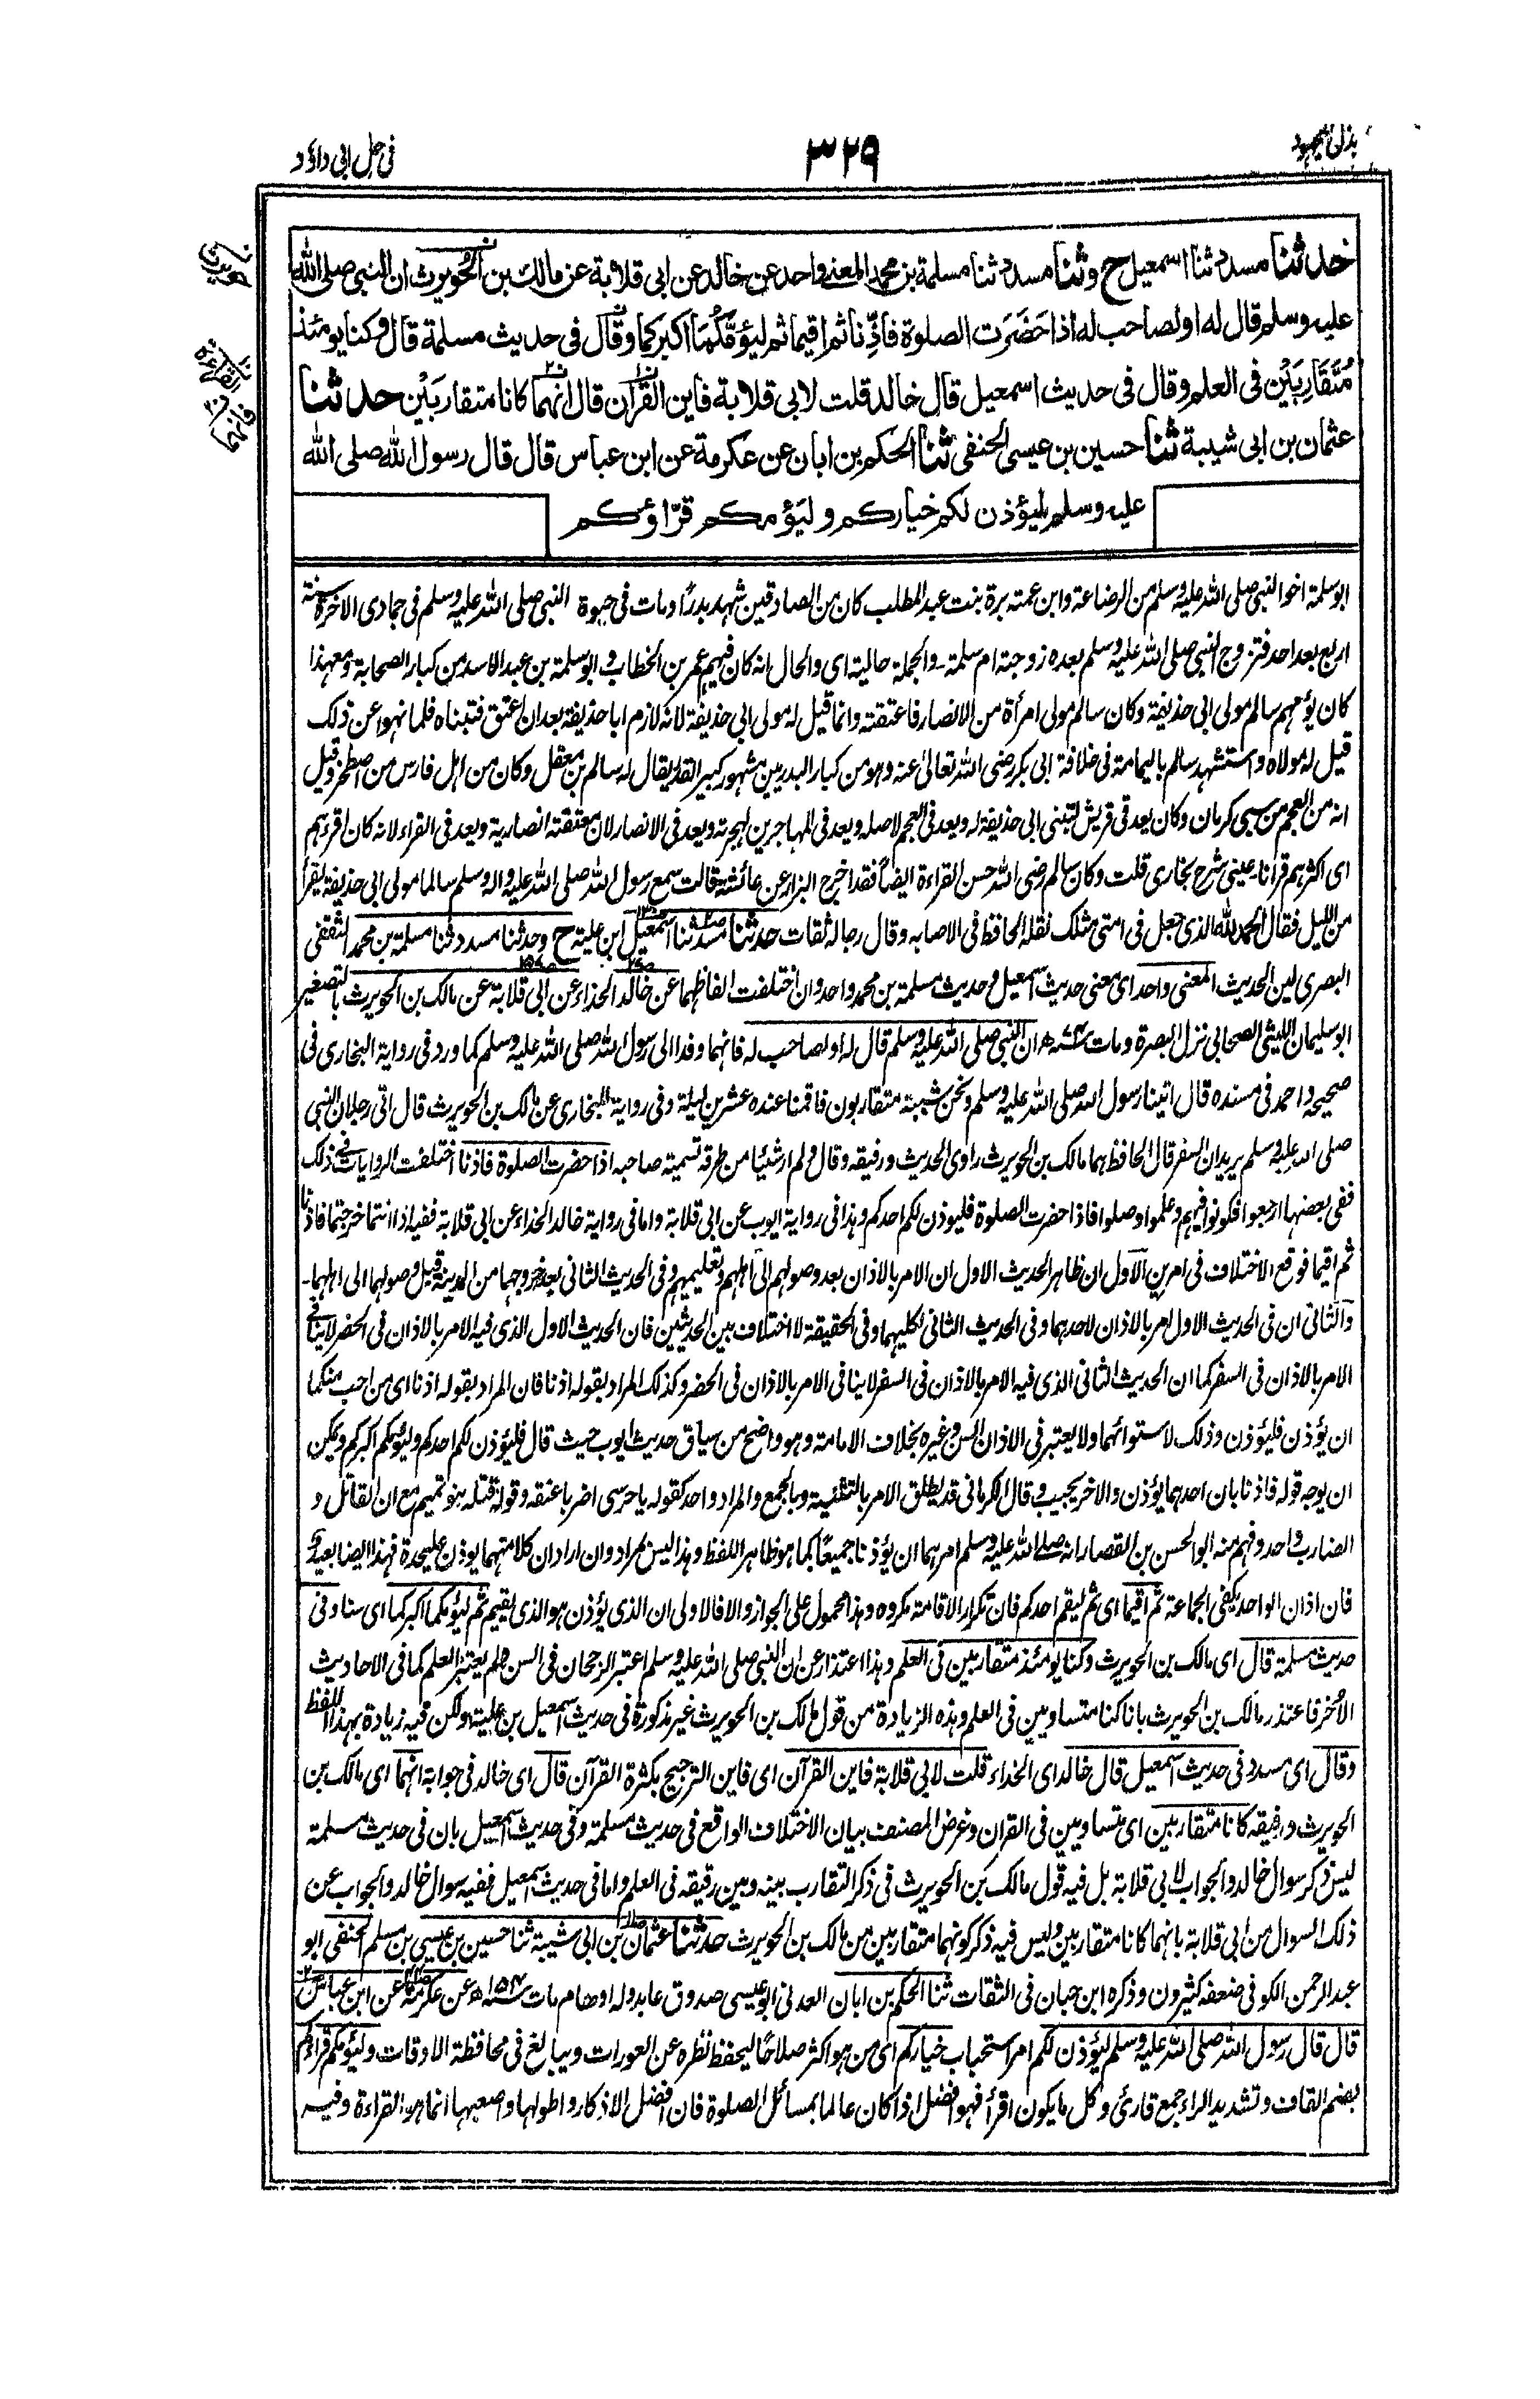 بذل المجهود
٣٢٩
فى حل ابى داؤد
حدثنا مسدد ثنا اسمعيل ح وثنا مسدد ثنا مسلمة بن محمد المعنى واحد عن خالد عن ابى قلابة عن مالك بن الحويرث ان النبى صلى الله
عليه وسلم قال له او لصاحب له اذا حضرت الصلوة فاذّنا ثم اقيما ثم ليؤمّكما اكبركما وقال فى حديث مسلمة قال وكنا يومئذ
متقاربَيْن فى العلم وقال فى حديث اسمعيل قال خالد قلت لابى قلابة فاين القرآن قال انهما كانا متقاربَيْن حدثنا
عثمان بن ابى شيبة ثنا حسين بن عيسى الحنفى ثنا الحكم بن ابان عن عكرمة عن ابن عباس قال قال رسول الله صلى الله
عليه وسلم ليؤذن لكم خياركم وليؤمكم قرّاؤكم
ابو سلمة اخو النبى صلى الله عليه وسلم من الرضاعة وابن عمته برة بنت عبد المطلب كان من الصادقين شهد بدرًا ومات فى حيوة النبى صلى الله عليه وسلم فى جمادى الاخرة سنة
اربع بعد احد فتزوج النبى صلى الله عليه وسلم بعده زوجته ام سلمة - والجملة حالية اى والحال انه كان فيهم عمر بن الخطاب و ابو سلمة بن عبد الاسد من كبار الصحابة ومعهذا
كان يؤمهم سالم مولى ابى حذيفة وكان سالم مولى امرأة من الانصار فاعتقته وانما قيل له مولى ابى حذيفة لانه لازم ابا حذيفة بعد ان اعتق فتبناه فلما نهوا عن ذلك
قيل له مولاه واستشهد سالم باليمامة فى خلافة ابى بكر رضى الله تعالىٰ عنه وهو من كبار البدريين مشهور كبير القدر يقال له سالم بن معقل وكان من اهل فارس من اصطخر وقيل
انه من العجم من سبى كرمان وكان يعد فى قريش لتبنى ابى حذيفة له ويعد فى العجم لاصله ويعد فى المهاجرين لهجرته ويعد فى الانصار لان معتقته انصارية ويعد فى القراء لانه كان اقرءهم
اى اكثرهم قرانا - عينى شرح بخارى قلت وكان سالم رضى الله حسن القراءة ايضاً فقد اخرج البزار عن عائشة قالت سمع رسول الله صلى الله عليه واله وسلم سالما مولى ابى حذيفة يقرأ
من الليل فقال الحمد لله الذى جعل فى امتى مثلك نقله الحافظ فى الاصابه وقال رجاله ثقات حدثنا مسدد ثنا اسمعيل ابن علية ح وحدثنا مسدد ثنا مسلمة بن محمد الثقفى
البصرى لين الحديث المعنى واحد اى معنى حديث اسمعيل وحديث مسلمة بن محمد واحد وان اختلفت الفاظهما عن خالد الحذاء عن ابى قلابة عن مالك بن الحويرث بالتصغير
ابو سليمان الليثى الصحابى نزل البصرة ومات ٧٤ﻫ ان النبى صلى الله عليه وسلم قال له او لصاحب له فانهما وفدا الى رسول الله صلى الله عليه وسلم كما ورد فى رواية البخارى فى
صحيحه واحمد فى مسنده قال اتينا رسول الله صلى الله عليه وسلم ونحن شببة متقاربون فاقمنا عنده عشرين ليلة وفى رواية للبخارى عن مالك بن الحويرث قال اتى رجلان النبى
صلى الله عليه وسلم يريدان السفر قال الحافظ هما مالك بن الحويرث راوى الحديث ورفيقه وقال ولم ار شيئا من طرقه تسمية صاحبه اذا حضرت الصلوة فاذنا اختلفت الروايات فى ذلك
ففى بعضها ارجعوا فكونوا فيهم وعلموا وصلوا فاذا حضرت الصلوة فليوذن لكم احدكم وهذا فى رواية ايوب عن ابى قلابة واما فى رواية خالد الحذاء عن ابى قلابة ففيه اذا انتما خرجتما فاذنا
ثم اقيما فوقع الاختلاف فى امرين الاول ان ظاهر الحديث الاول ان الامر بالاذان بعد وصولهم الى اهلهم وتعليمهم وفى الحديث الثانى بعد خروجهما من المدينة قبل وصولهما الى اهلهما -
والثانى ان فى الحديث الاول امر بالاذان لاحدهما وفى الحديث الثانى لكليهما وفى الحقيقة لا اختلاف بين الحديثين فان الحديث الاول الذى فيه الامر بالاذان فى الحضر لا ينافى
الامر بالاذان فى السفر كما ان الحديث الثانى الذى فيه الامر بالاذان فى السفر لا ينافى الامر بالاذان فى الحضر وكذلك المراد بقوله اذنا فان المراد بقوله اذنا اى من احب منكما
ان يؤذن فليؤذن وذلك لاستوائهما ولا يعتبر فى الاذان السن وغيره بخلاف الامامة وهو واضح من سياق حديث ايوب حيث قال فليؤذن لكم احدكم وليؤمكم اكبركم ويمكن
ان يوجه قوله فاذنا بان احدهما يؤذن والاخر يجيب وقال الكرمانى قد يطلق الامر بالتثنية وبالجمع والمراد واحد كقوله يا حرسى اضربا عنقه وقوله قتله بنو تميم مع ان القاتل و
الضارب واحد وفهم منه ابو الحسن بن القصار انه صلى الله عليه وسلم امرهما ان يؤذنا جميعًا كما هو ظاهر اللفظ وهذا ليس بمراد وان اراد ان كلا منهما يوذن عليحدة فهذا ايضا بعيد و
فان اذان الواحد يكفى الجماعة ثم اقيما اى ثم ليقم احدكم فان تكرار الاقامة مكروه وهذا محمول على الجواز والا فالاولى ان الذى يؤذن هو الذى يقيم ثم ليؤمكما اكبركما اى سنا وفى
حديث مسلمة قال اى مالك بن الحويرث وكنا يومئذ متقاربين فى العلم وهذا اعتذار عن ان النبى صلى الله عليه وسلم اعتبر الرجحان فى السن ولم يعتبر العلم كما فى الاحاديث
الأخر فاعتذر مالك بن الحويرث بانا كنا متساويين فى العلم وهذه الزيادة من قول مالك بن الحويرث غير مذكورة فى حديث اسمعيل بن علية ولكن فيه زيادة بهذا اللفظ
وقال اى مسدد فى حديث اسمعيل قال خالد اى الحذاء قلت لابى قلابة فاين القرآن اى فاين الترجيح بكثرة القرآن قال اى خالد فى جوابه انهما اى مالك بن
الحويرث ورفيقه كانا متقاربين اى متساويين فى القران وغرض المصنف بيان الاختلاف الواقع فى حديث مسلمة وفى حديث اسمعيل بان فى حديث مسلمة
ليس ذكر سوال خالد والجواب لابى قلابة بل فيه قول مالك بن الحويرث فى ذكر التقارب بينه وبين رفيقه فى العلم واما فى حديث اسمعيل ففيه سوال خالد والجواب عن
ذلك السوال من ابى قلابة بانهما كانا متقاربين وليس فيه ذكر كونهما متقاربين من مالك بن الحويرث حدثنا عثمان بن ابى شيبة ثنا حسين بن عيسى بن مسلم الحنفى ابو
عبد الرحمن الكوفى ضعفه كثيرون وذكره ابن حبان فى الثقات ثنا الحكم بن ابان العدنى ابو عيسى صدوق عابد وله اوهام مات ١٥٤ﻫ عن عكرمة عن ابن عباس
قال قال رسول الله صلى الله عليه وسلم ليؤذن لكم امر استحباب خياركم اى من هو اكثر صلاحًا ليحفظ نظره عن العورات ويبالغ فى محافظة الاوقات وليؤمكم قراءكم
بضم القاف وتشديد الراء جمع قارئ وكل ما يكون اقرأ فهو افضل اذا كان عالما بمسائل الصلوة فان افضل الاذكار واطولها واصعبها انما هو القراءة وفيه